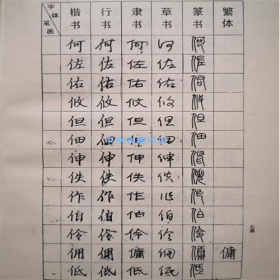 字体 笔画 楷书 行书 隶书 草书 篆书 繁体
何 何 何 何 何
佐 佐 佐 佐 佐
佑 佑 佑 佑 佑
攸 攸 攸 攸 攸
但 但 但 但 但
佃 佃 佃 佃 佃
伸 伸 伸 伸 伸
佚 佚 佚 佚 佚
作 作 作 作 作
伯 伯 伯 伯 伯
伶 伶 伶 伶 伶
佣 佣 傭 佣 傭 傭
低 低 低 低 低